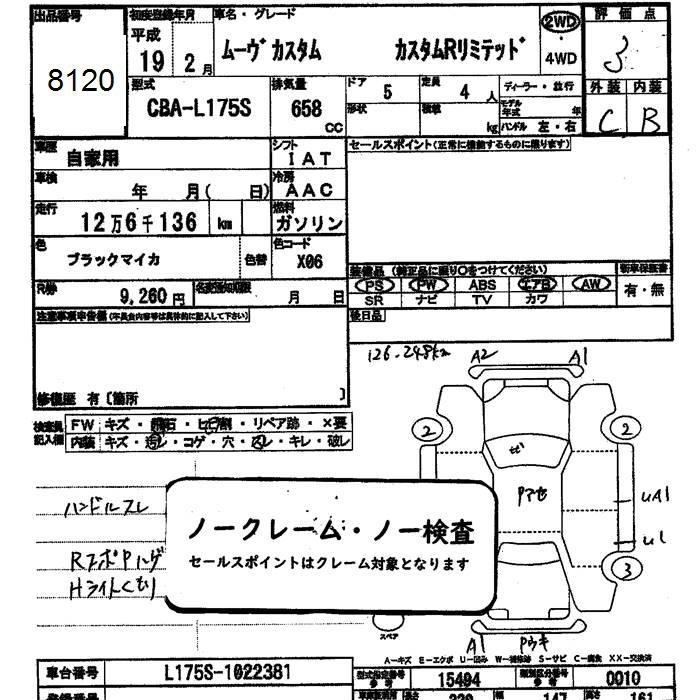 出品番号 初度登録年月 車名・グレード 2WD 評価点
8120 平成 19 2月 ムーヴカスタム カスタムRリミテッド 4WD 3
型式 排気量 ドア 5 定員 4人 ディーラー・並行 外装 内装
CBA-L175S 658 CC 形状 積載 kg モデル年式 年 ハンドル 左・右 C B
車歴 自家用 シフト IAT セールスポイント(正常に機能するものに限ります)
車検 年 月( 日) 冷房 AAC
走行 12万6千136 km 燃料 ガソリン
色 ブラックマイカ 色替 色コード X06
装備品 (純正品に限り○をつけてください) 新車保証書
PS PW ABS エアB AW 有・無
SR ナビ TV カワ
R券 9,260円 名変通知期限 月 日
注意事項申告欄(不具合内容等は具体的に記入して下さい) 後日品
126.248km A2 A1
修復歴 有〔箇所 〕
検査員記入欄 FW キズ・飛石・ヒビ割・リペア跡・×要
内装 キズ・汚レ・コゲ・穴・スレ・キレ・破レ
2 2
ハンドルスレ UA1
ノークレーム・ノー検査
セールスポイントはクレーム対象となります
U1
Hライトくもり 3
スペア A1
A-キズ E-エクボ U-凹み W-補修跡 S-サビ C-腐食 XX-交換済
車台番号 L175S-1022381 型式指定番号 15494 類別区分番号 0010